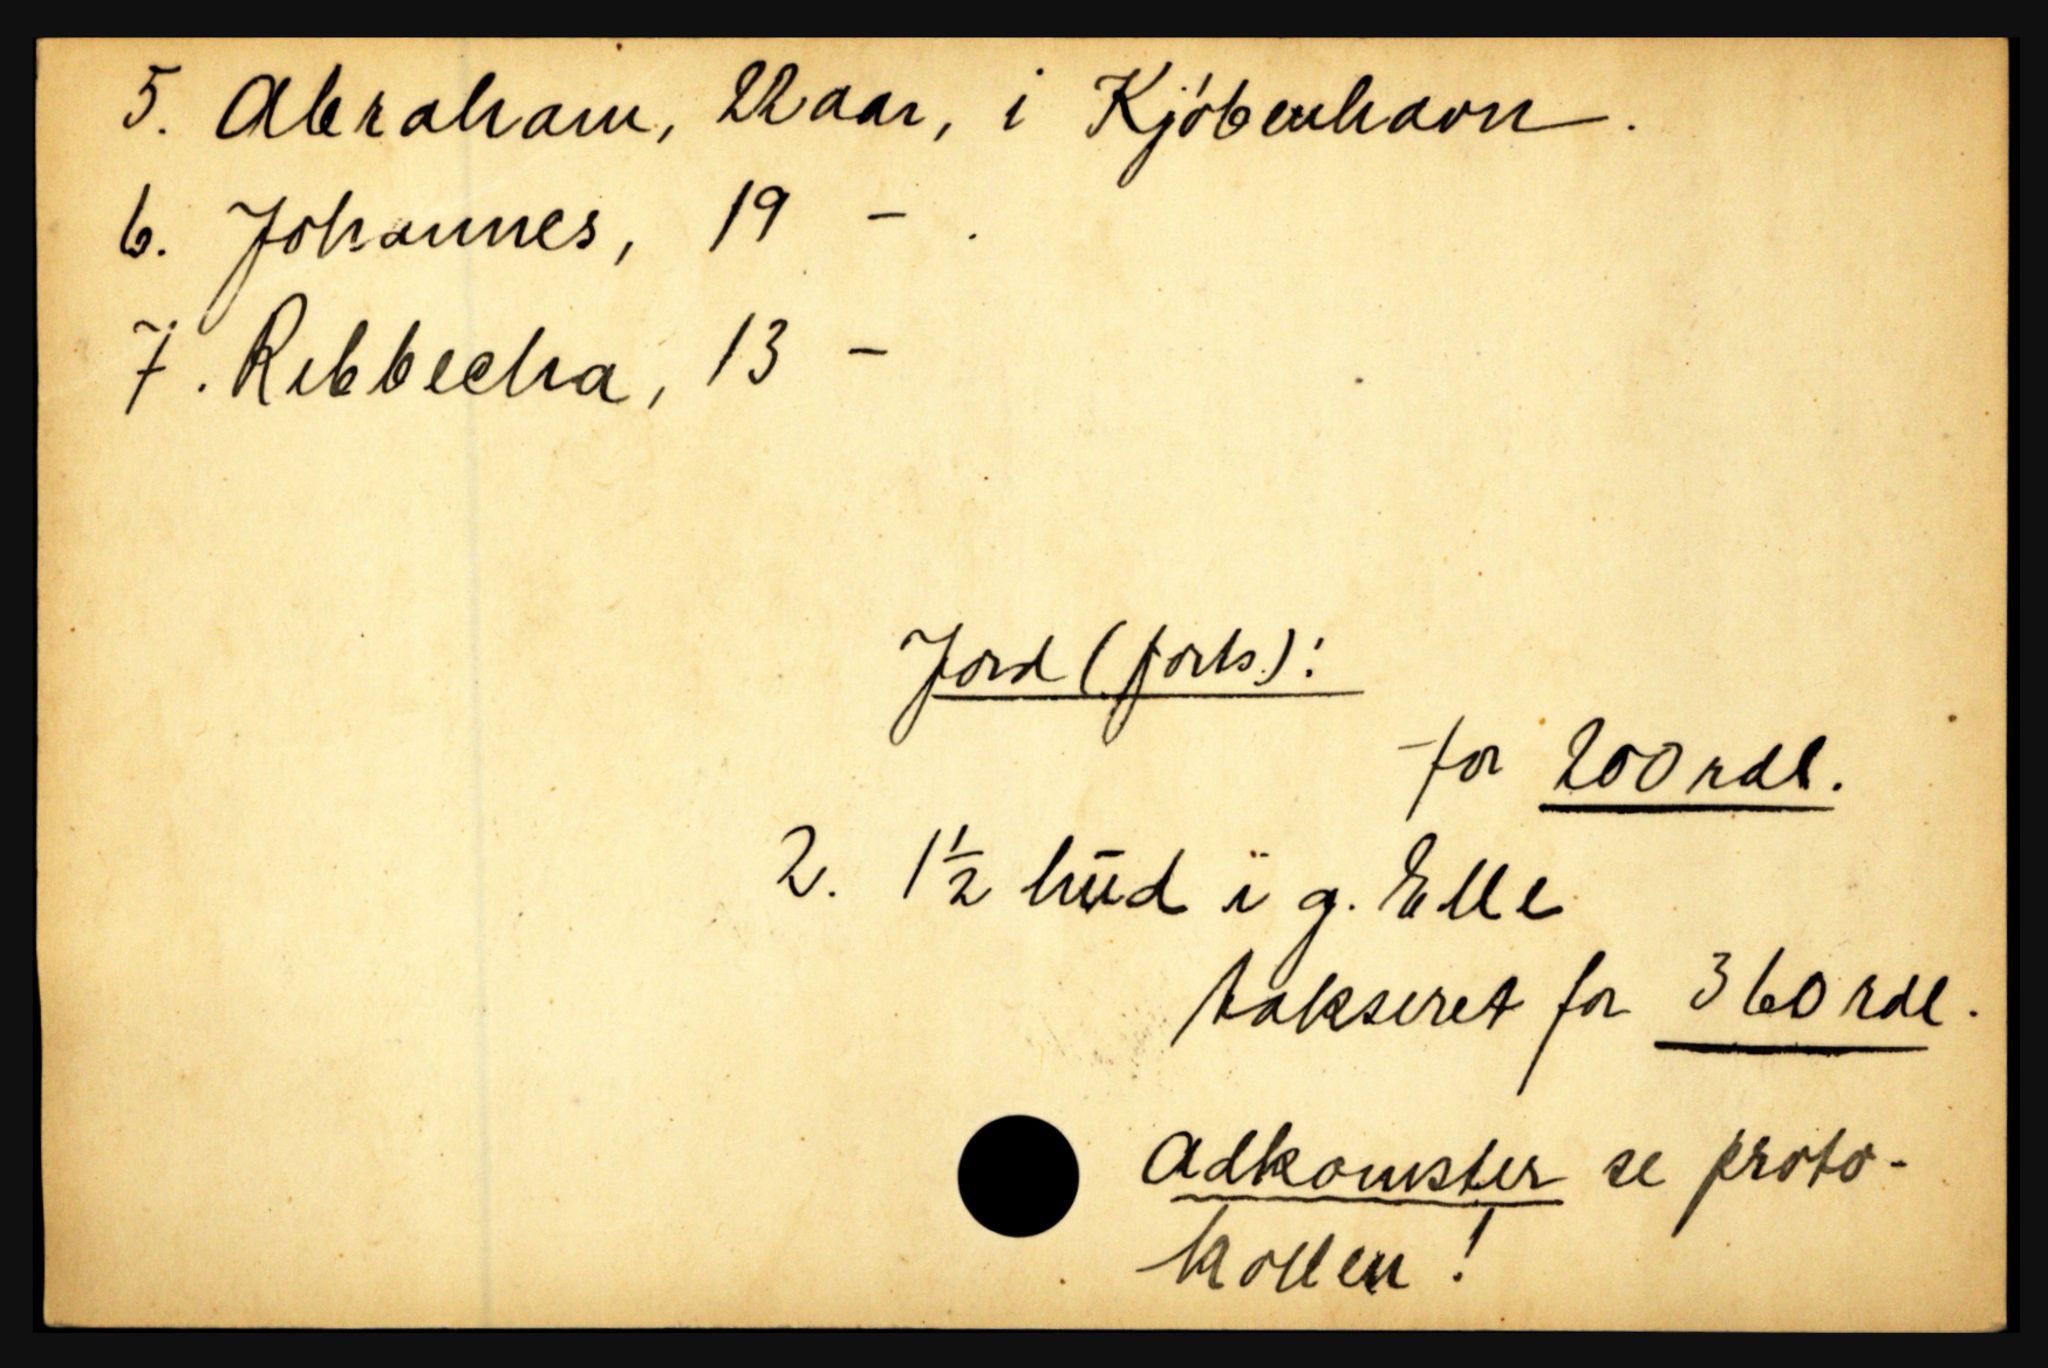 5. Abraham, 22 aar, i Kjöbenhavn.
6. Johannes, 19 - .
7. Rebbecha, 13 -
Jord (forts.):
for 200 rdl.
2. 1½ hud i g. Elle
takseret for 360 rdl.
Adkomster se proto-
kollen!